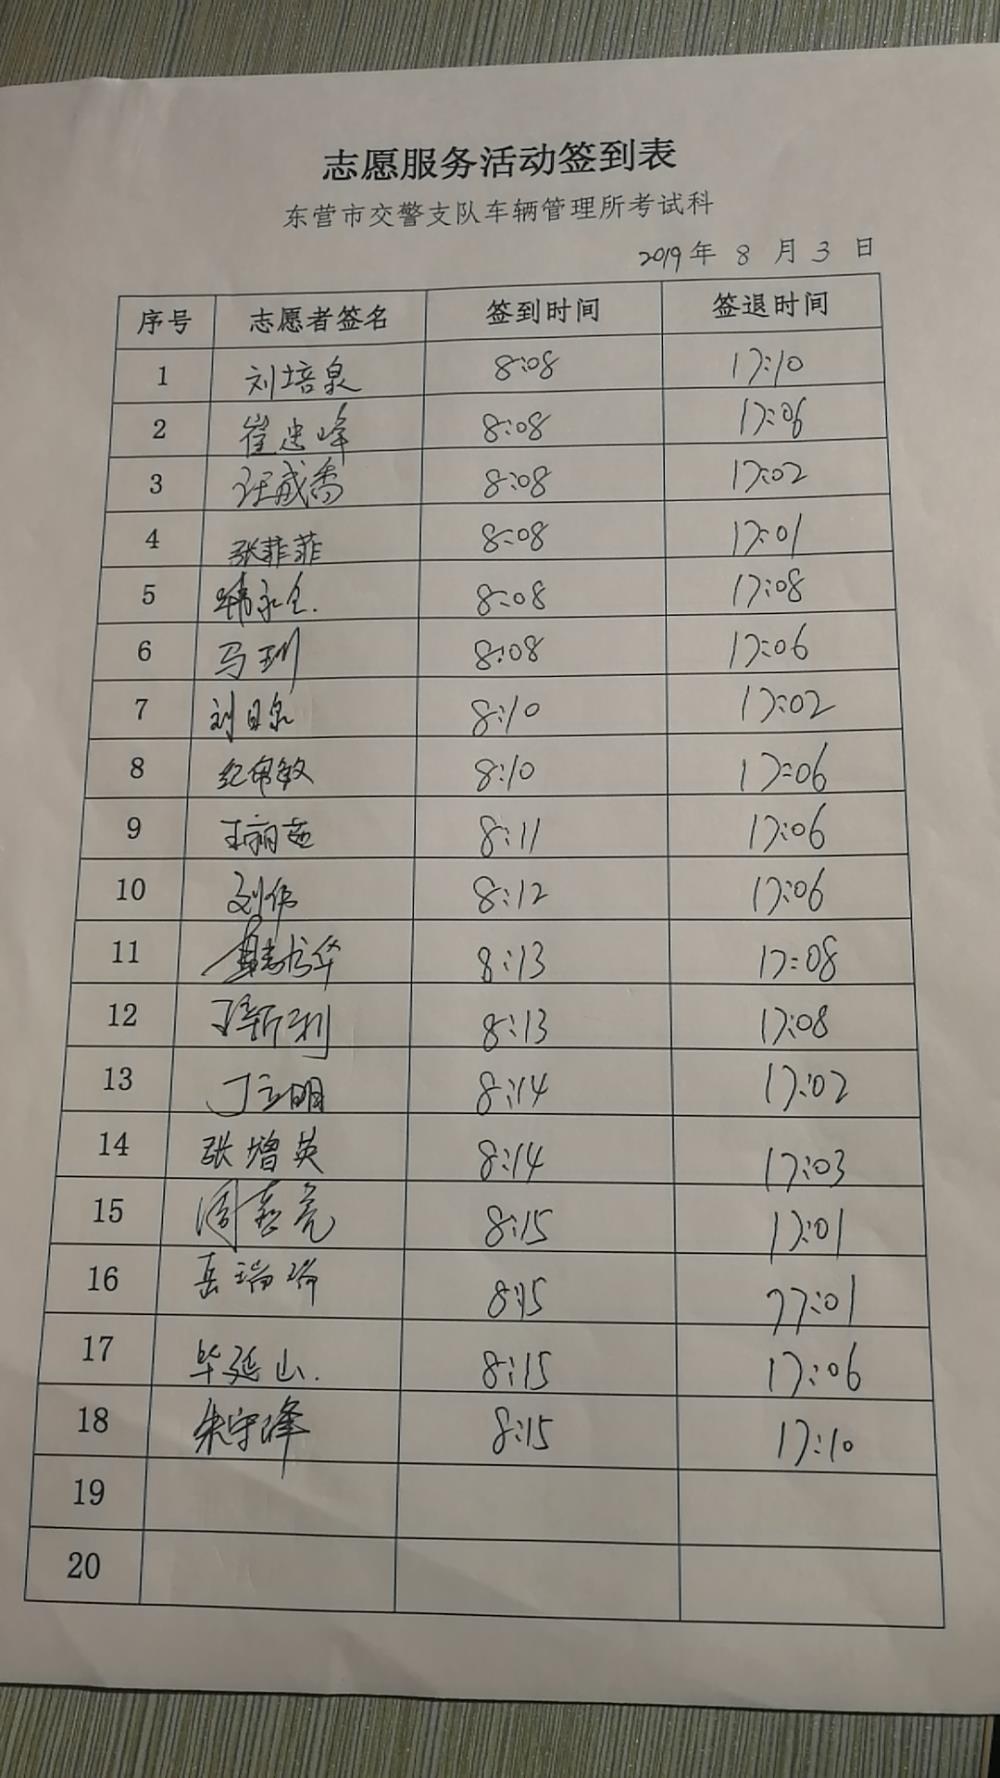 志愿服务活动签到表
东营市交警支队车辆管理所考试科
2019年 8 月 3 日
序号 志愿者签名 签到时间 签退时间
1 刘培泉 8:08 17:10
2 崔忠峰 8:08 17:06
3 8:08 17:02
4 张菲菲 8:08 17:01
5 韩永全. 8:08 17:08
6 马玥 8:08 17:06
7 刘日泉 8:10 17:02
8 8:10 17:06
9 8:11 17:06
10 刘伟 8:12 17:06
11 8:13 17:08
12 8:13 17:08
13 丁立明 8:14 17:02
14 张增英 8:14 17:03
15 周嘉亮 8:15 17:01
16 岳瑞 8:15 17:01
17 毕延山. 8:15 17:06
18 朱守峰 8:15 17:10
19
20